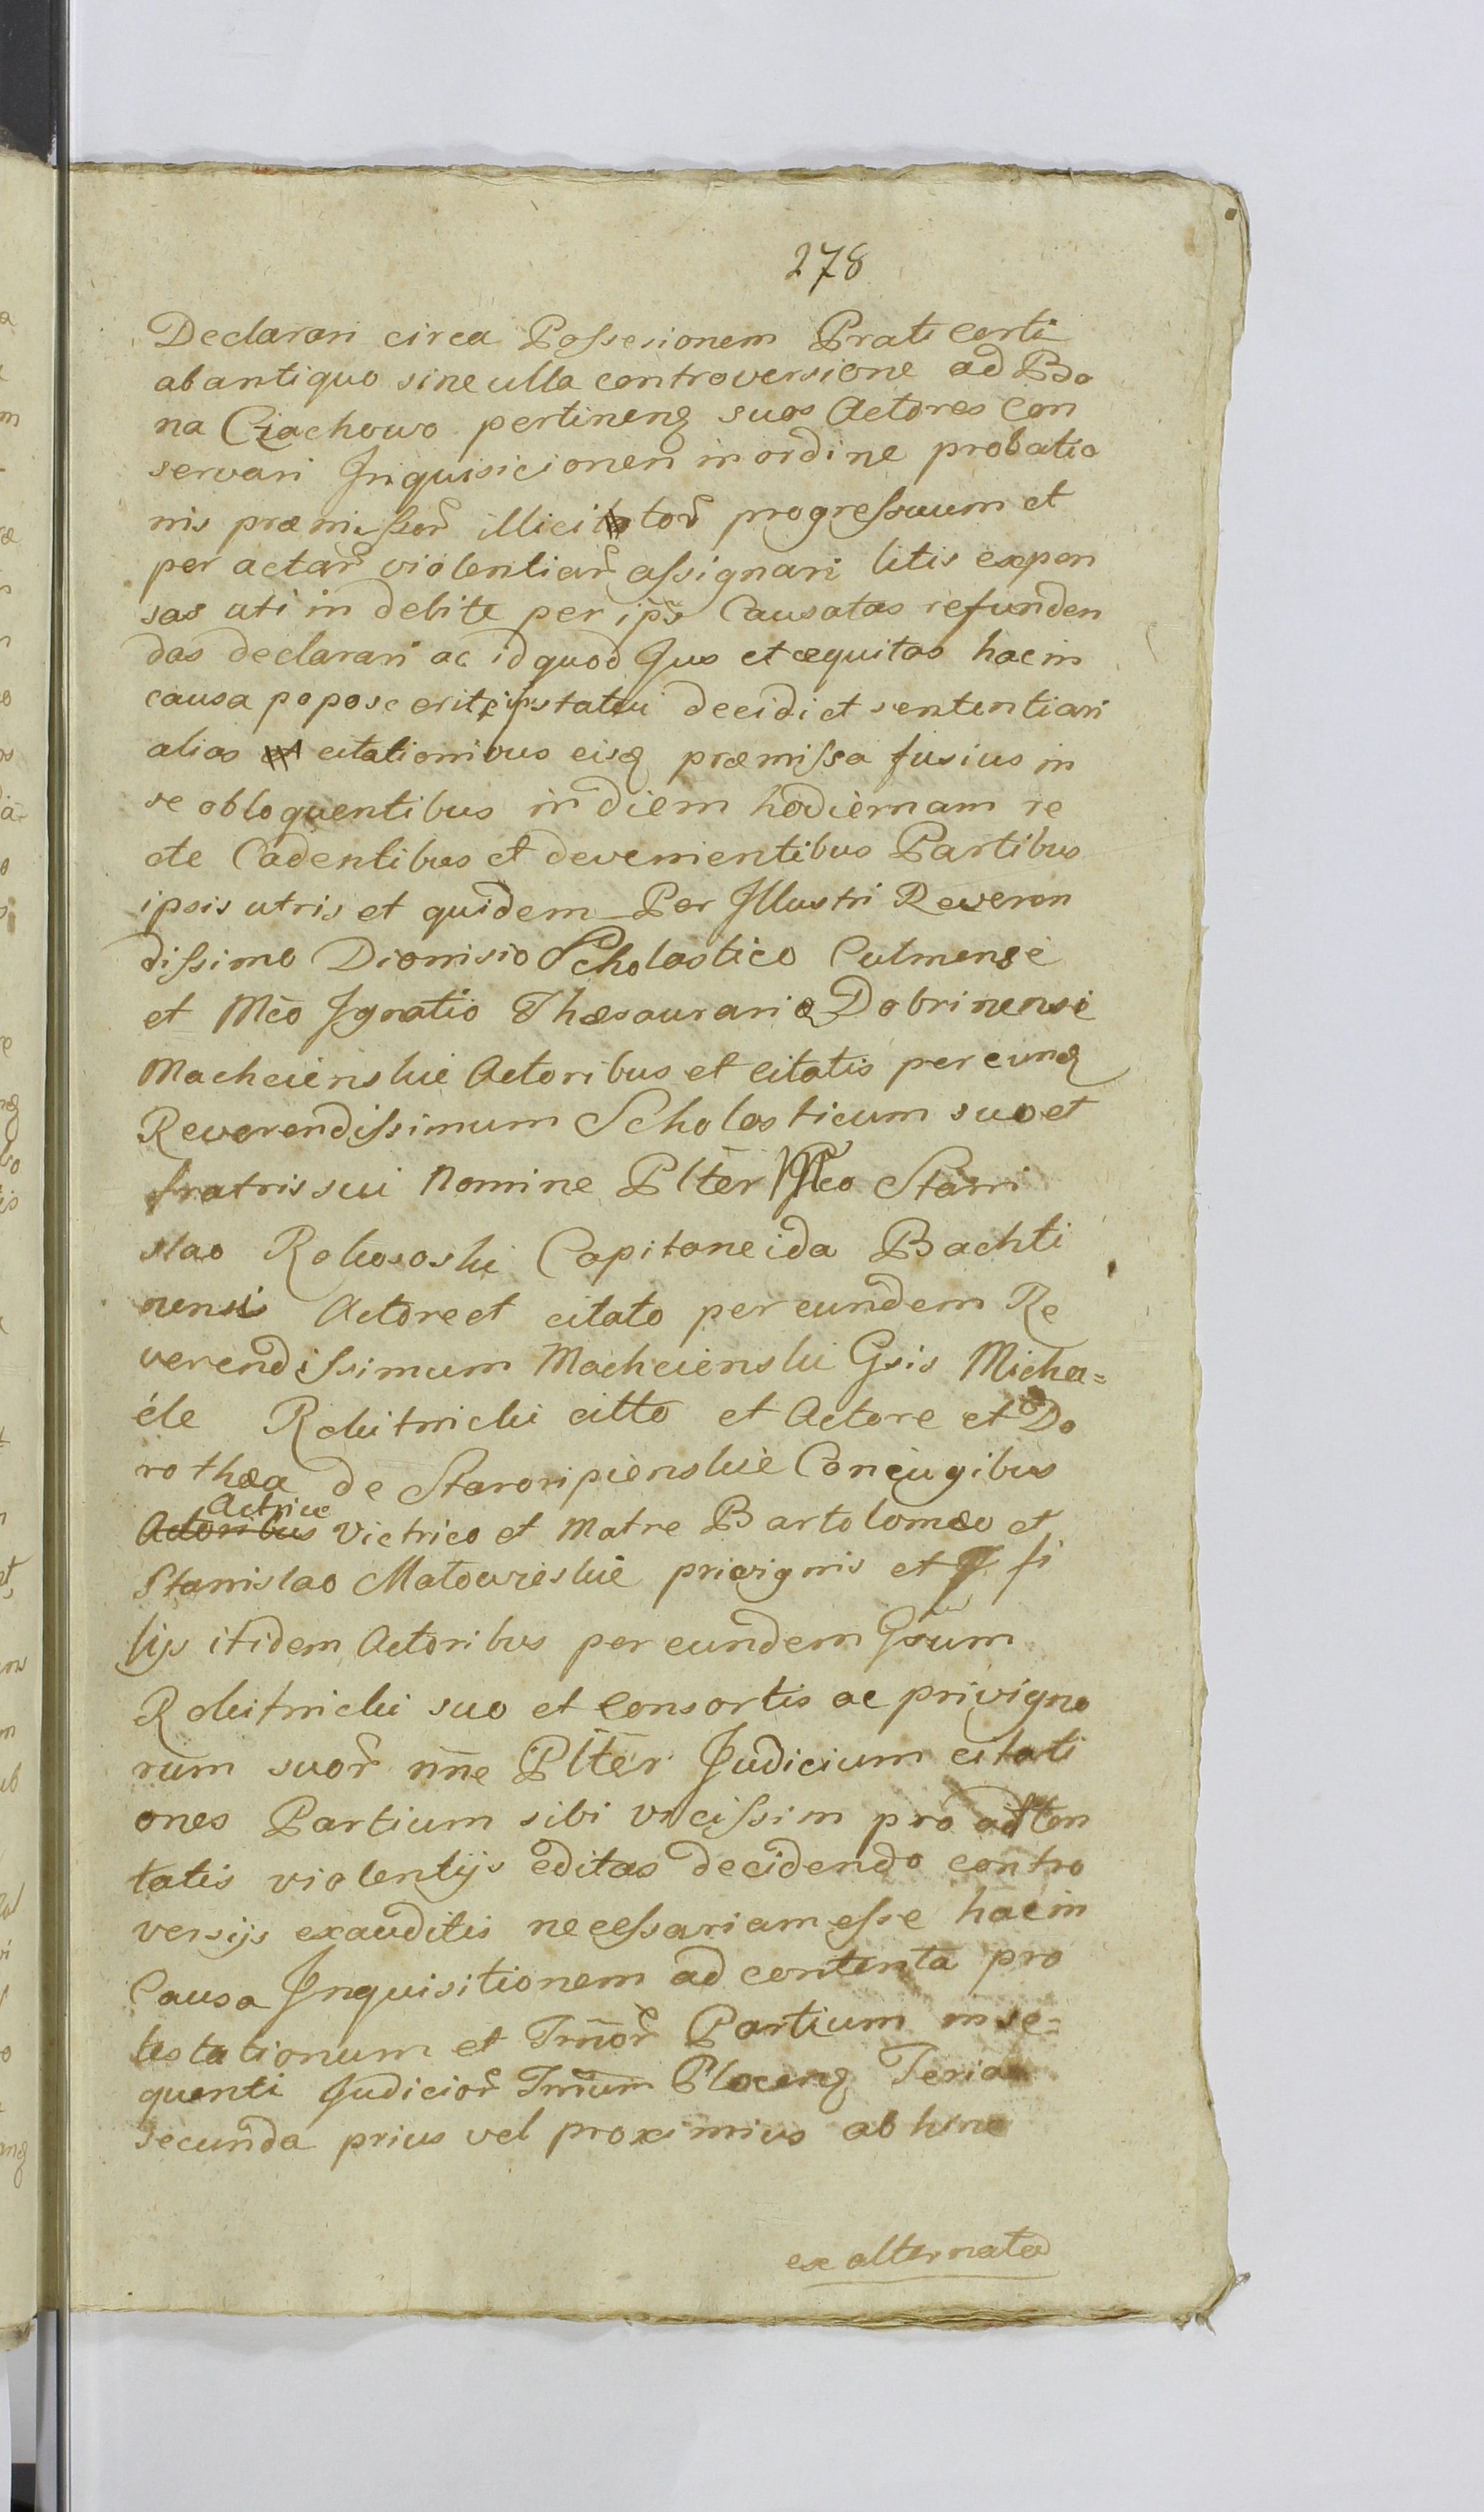 278
Declarari circa Possesionem Prati certi
ab antiquo sine ulla controversione ad Bo
na Ciachowo pertinenꝫ suos Actores con
servari Inquisicionem in ordine probatio
nis præmissor̃ illicitor̃ progressuum et
per actar̃ violentiar̃ assignari litis expen
sas uti in debite per ips̃ Causatas refunden
das declarari ac id quod Jus et æquitas hac in
causa poposcerit statui decidi et sententiari
alias citationibus eisꝫ præmissa fusius in
se obloquentibus in diem hodiernam re
cte Cadentibus et devenientibus Partibus
ipsis utris et quidem Per Illustri Reveren
dissimo Dionisio Scholastico Culmense
et Mco Ignatio Thæsaurario Dobrinensi
Machcienskie Actoribus et citatis per eunꝫ
Reverendissimum Scholasticum suo et
fratris sui Nomine Plter Mco Stani
slao Rokososki Capitaneida Bachti
nensi Actore et citato per eundem Re
verendissimum Machcienski Gsis Micha=
éle Rokitnicki citto et Actore et Do
rothea de Staroripienskie Coniugibus
Actrice
Actoribus Victrico et Matre Bartolomæo et
Stanislao Matowieskie privignis et fi
lijs itidem Actoribus per eundem Gsum
Rokitnicki suo et Consortis ac privigno
rum suor̃ nne Plter Judicium citati
ones Partium sibi vicissim pro adtten
tatis violentijs editas decidendo contro
versijs exauditis necessariam esse hac in
Causa Inquisitionem ad contenta pro
testationum et Trnor̃ Partium in se=
quenti Judicior̃ Trrium Plocenꝫ Feria
secunda prius vel proximius ab hinc
ex alternata